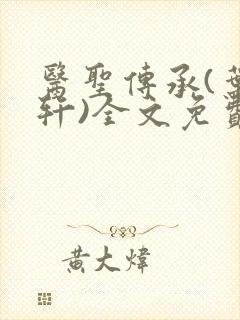 醫聖傳承(葉
軒)全文免費
黃大煒